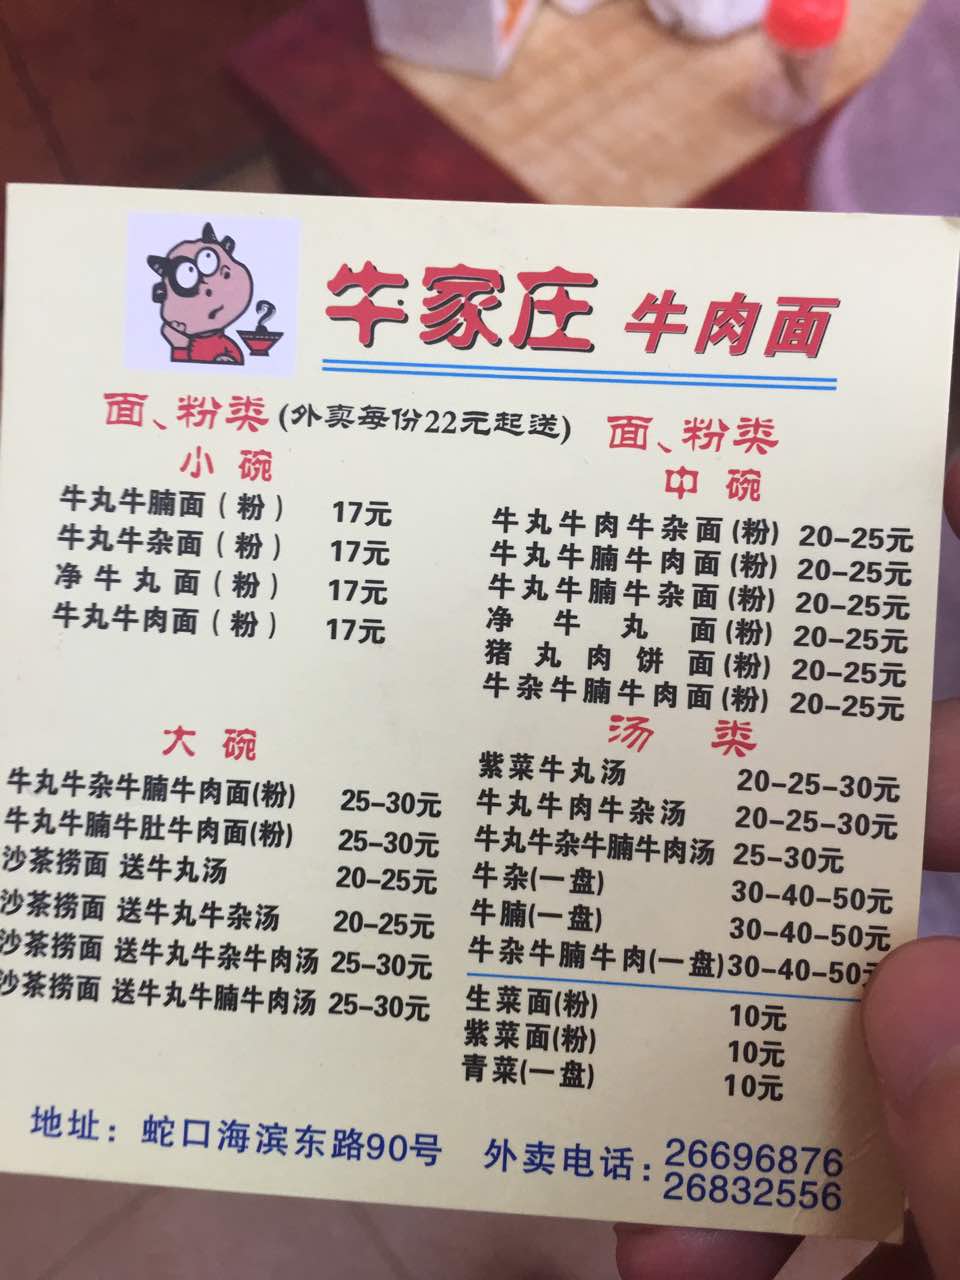 牛家庄 牛肉面
面、粉类(外卖每份22元起送)
小碗
牛丸牛腩面(粉) 17元
牛丸牛杂面(粉) 17元
净牛丸面(粉) 17元
牛丸牛肉面(粉) 17元
面、粉类
中碗
牛丸牛肉牛杂面(粉) 20-25元
牛丸牛腩牛肉面(粉) 20-25元
牛丸牛腩牛杂面(粉) 20-25元
净牛丸面(粉) 20-25元
猪丸肉饼面(粉) 20-25元
牛杂牛腩牛肉面(粉) 20-25元
大碗
牛丸牛杂牛腩牛肉面(粉) 25-30元
牛丸牛腩牛肚牛肉面(粉) 25-30元
沙茶捞面 送牛丸汤 20-25元
沙茶捞面 送牛丸牛杂汤 20-25元
沙茶捞面 送牛丸牛杂牛肉汤 25-30元
沙茶捞面 送牛丸牛腩牛肉汤 25-30元
汤类
紫菜牛丸汤 20-25-30元
牛丸牛肉牛杂汤 20-25-30元
牛丸牛杂牛腩牛肉汤 25-30元
牛杂(一盘) 30-40-50元
牛腩(一盘) 30-40-50元
牛杂牛腩牛肉(一盘) 30-40-50元
生菜面(粉) 10元
紫菜面(粉) 10元
青菜(一盘) 10元
地址：蛇口海滨东路90号 外卖电话：26696876
26832556